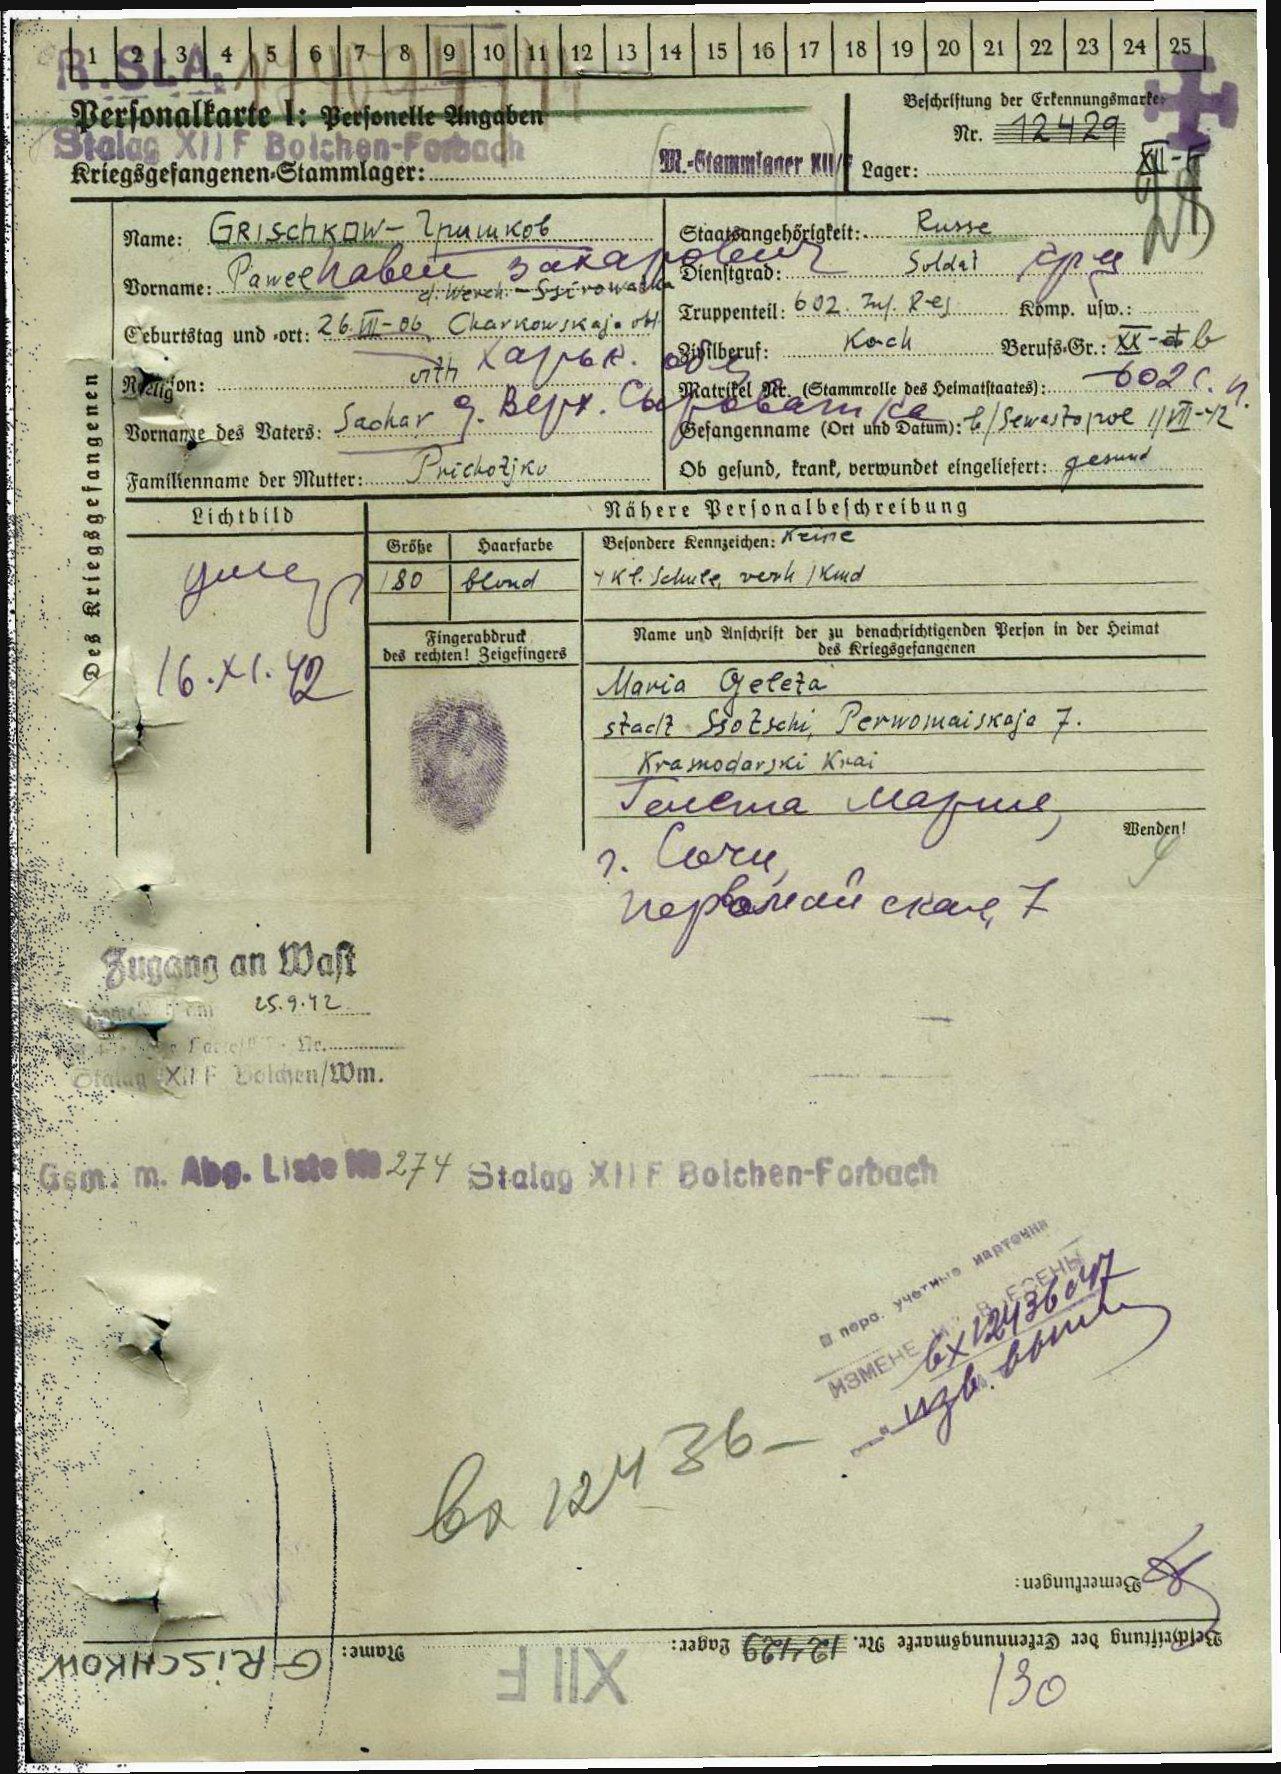 1 2 3 4 5 6 7 8 9 10 11 12 13 14 15 16 17 18 19 20 21 22 23 24 25
Personalkarte I: Personelle Angaben
Beschriftung der Erkennungsmarke
Nr. 12429
Stalag XII F Bolchen-Forbach
Kriegsgefangenen-Stammlager: M.-Stammlager XII/F
Lager: XII-F
Des Kriegsgefangenen
Name: GRISCHKOW - Гришков
Vorname: Pawel Павел Захарович
d. Werch. - Ssirowatka
Geburtstag und -ort: 26.VII-06 Charkowskaja obl
Харьк. обл
Religion: orth
д. Верх. Сыроватка
Vorname des Vaters: Sachar
Familienname der Mutter: Prichotjko
Staatsangehörigkeit: Russe
Dienstgrad: Soldat
Truppenteil: 602. Inf. Reg Komp. usw.:
Zivilberuf: Koch Berufs-Gr.: XX-b
Matrikel Nr. (Stammrolle des Heimatstaates): 602 с. п.
Gefangenname (Ort und Datum): b/Sewastopol 1/VII-42
Ob gesund, krank, verwundet eingeliefert: gesund
Lichtbild
16.XI.42
Nähere Personalbeschreibung
Größe Haarfarbe
180 blond
Besondere Kennzeichen: Keine
4 Kl. Schule, verh 1 Kind
Fingerabdruck
des rechten! Zeigefingers
Name und Anschrift der zu benachrichtigenden Person in der Heimat
des Kriegsgefangenen
Maria Geleta
stadt Ssotschi, Perwomaiskaja 7.
Krasnodarski Krai
Гелета Мария,
г. Сочи,
Первомайская, 7
Wenden!
Zugang an Wast
25.9.42
Stalag XII F Bolchen/Wm.
Gem. m. Abg. Liste № 274 Stalag XII F Bolchen-Forbach
В перс. учетные карточки
вх 12436 с 47
изв.
вх 12436-
Bemerkungen:
Beschriftung der Erkennungsmarke Nr. 12429 Lager: XII F
Name: GRISCHKOW
130